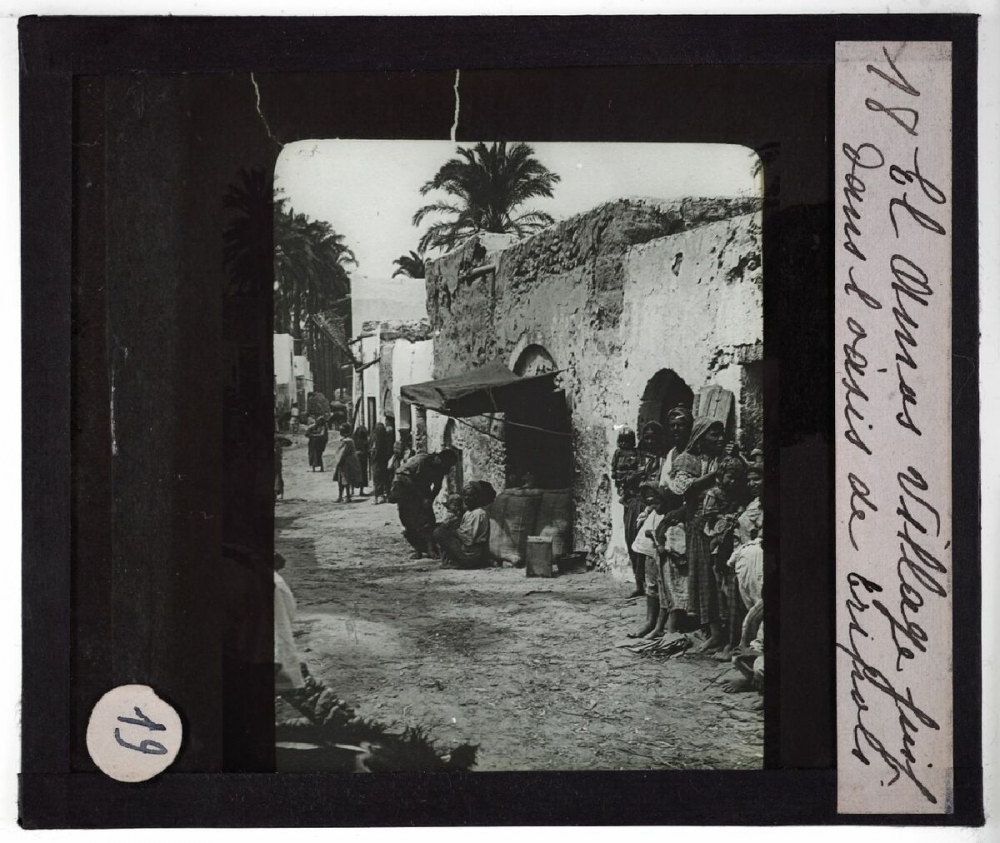 18 El Amros village juif
dans l'oasis de Tripoli
19